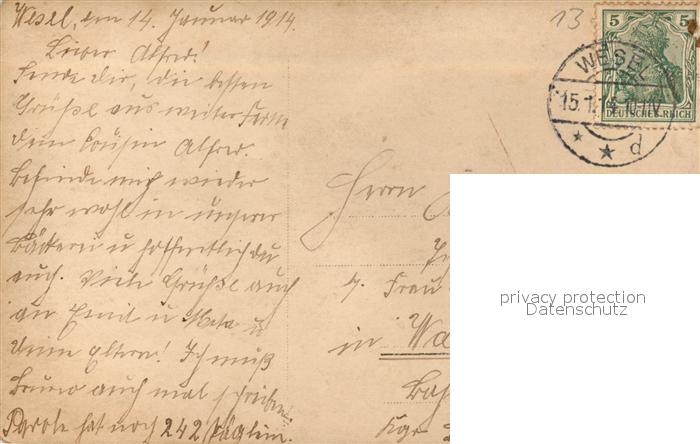 Wesel, den 14. Januar 1914.
Lieber Alfred!
Sende dir, die besten
Grüße aus weiter Ferne
dein Cousin Alfred.
Befinde mich wieder
sehr wohl in unserer
u hoffentlich du
auch. Viele Grüße auch
an Emil u Meta u
deine Eltern! Ich muß
Bruno auch mal schreiben.
Parole hat noch 242
13
5 5
DEUTSCHES REICH
WESEL
15.1.14. 10-11V.
* * d
Herrn
Frau
in Wa
privacy protection
Datenschutz